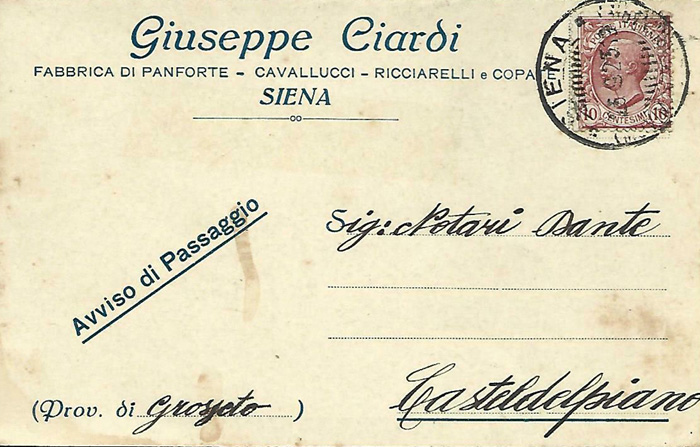 Giuseppe Ciardi
FABBRICA DI PANFORTE - CAVALLUCCI - RICCIARELLI e COPA
SIENA
SIENA
10 CENTESIMI 10
Avviso di Passaggio
Sig: Notari Dante
Casteldelpiano
(Prov. di Grosseto)